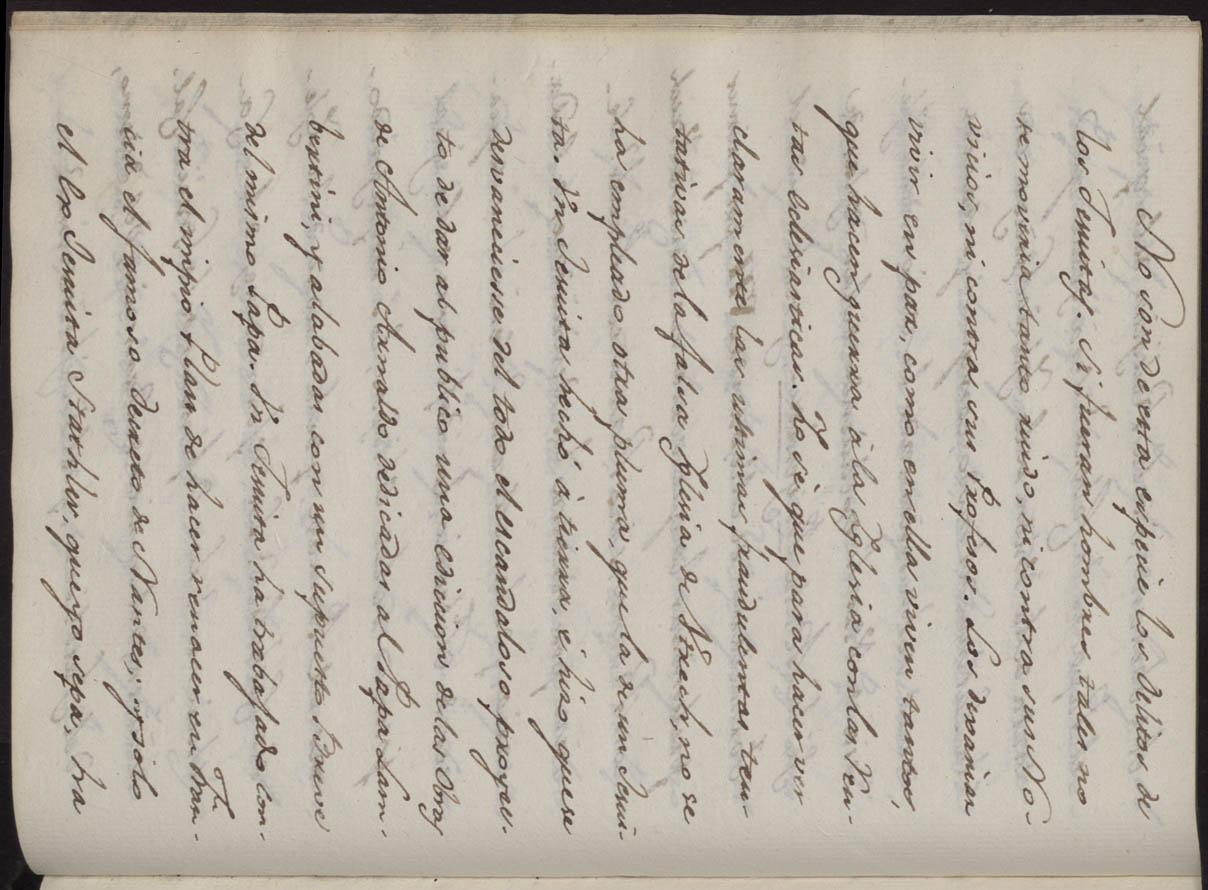 No son de esta especie los delitos de
los Jesuitas. Si fueran hombres tales no
se movería tanto ruido, ni contra sus No-
vicios, ni contra sus Profesos. Los dexarian
vivir en paz, como en ella viven tantos
que hacen guerra à la Iglesia con las Ren-
tas eclesiasticas. Yo sè que para hacer ver
claramente las ultimas fraudulentas ten-
tativas de la falsa Iglesia de Utrech no se
ha empleado otra pluma, que la de un Jesui-
ta. Un Jesuita hechó à tierra, è hizo que se
desvaneciese del todo el escandaloso proyec-
to de dar al publico una edicion de las Obras
de Antonio Arnaldo dedicadas al Papa Lam-
bertini, y alabadas con un supuesto Breve
del mismo Papa. Un Jesuita ha trabajado con-
tra el impio Plan de hacer renacer en Fran-
cia el famoso Decreto de Nantes; y solo
el Ex Jesuita Stathler, que yo sepa, ha